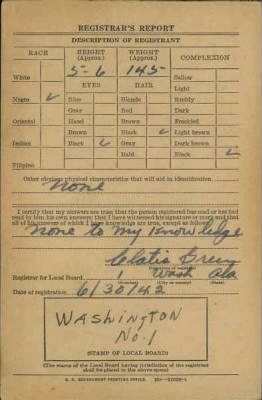 REGISTRAR'S REPORT
DESCRIPTION OF REGISTRANT
RACE HEIGHT (Approx.) WEIGHT (Approx.) COMPLEXION
White 5-6 145 Sallow
EYES HAIR Light
Negro ✓ Blue Blonde Ruddy
Gray Red Dark
Oriental Hazel Brown Freckled
Brown Black ✓ Light brown
Indian Black ✓ Gray Dark brown
Bald Black ✓
Filipino
Other obvious physical characteristics that will aid in identification
None
I certify that my answers are true; that the person registered has read or has had
read to him his own answers; that I have witnessed his signature or mark and that
all of his answers of which I have knowledge are true, except as follows:
None to my Knowledge
Green
Registrar for Local Board 1 Wash Ala
(Number) (City or county) (State)
Date of registration 6/30/42
WASHINGTON
No. 1
(STAMP OF LOCAL BOARD)
(The stamp of the Local Board having jurisdiction of the registrant
shall be placed in the above space)
U. S. GOVERNMENT PRINTING OFFICE